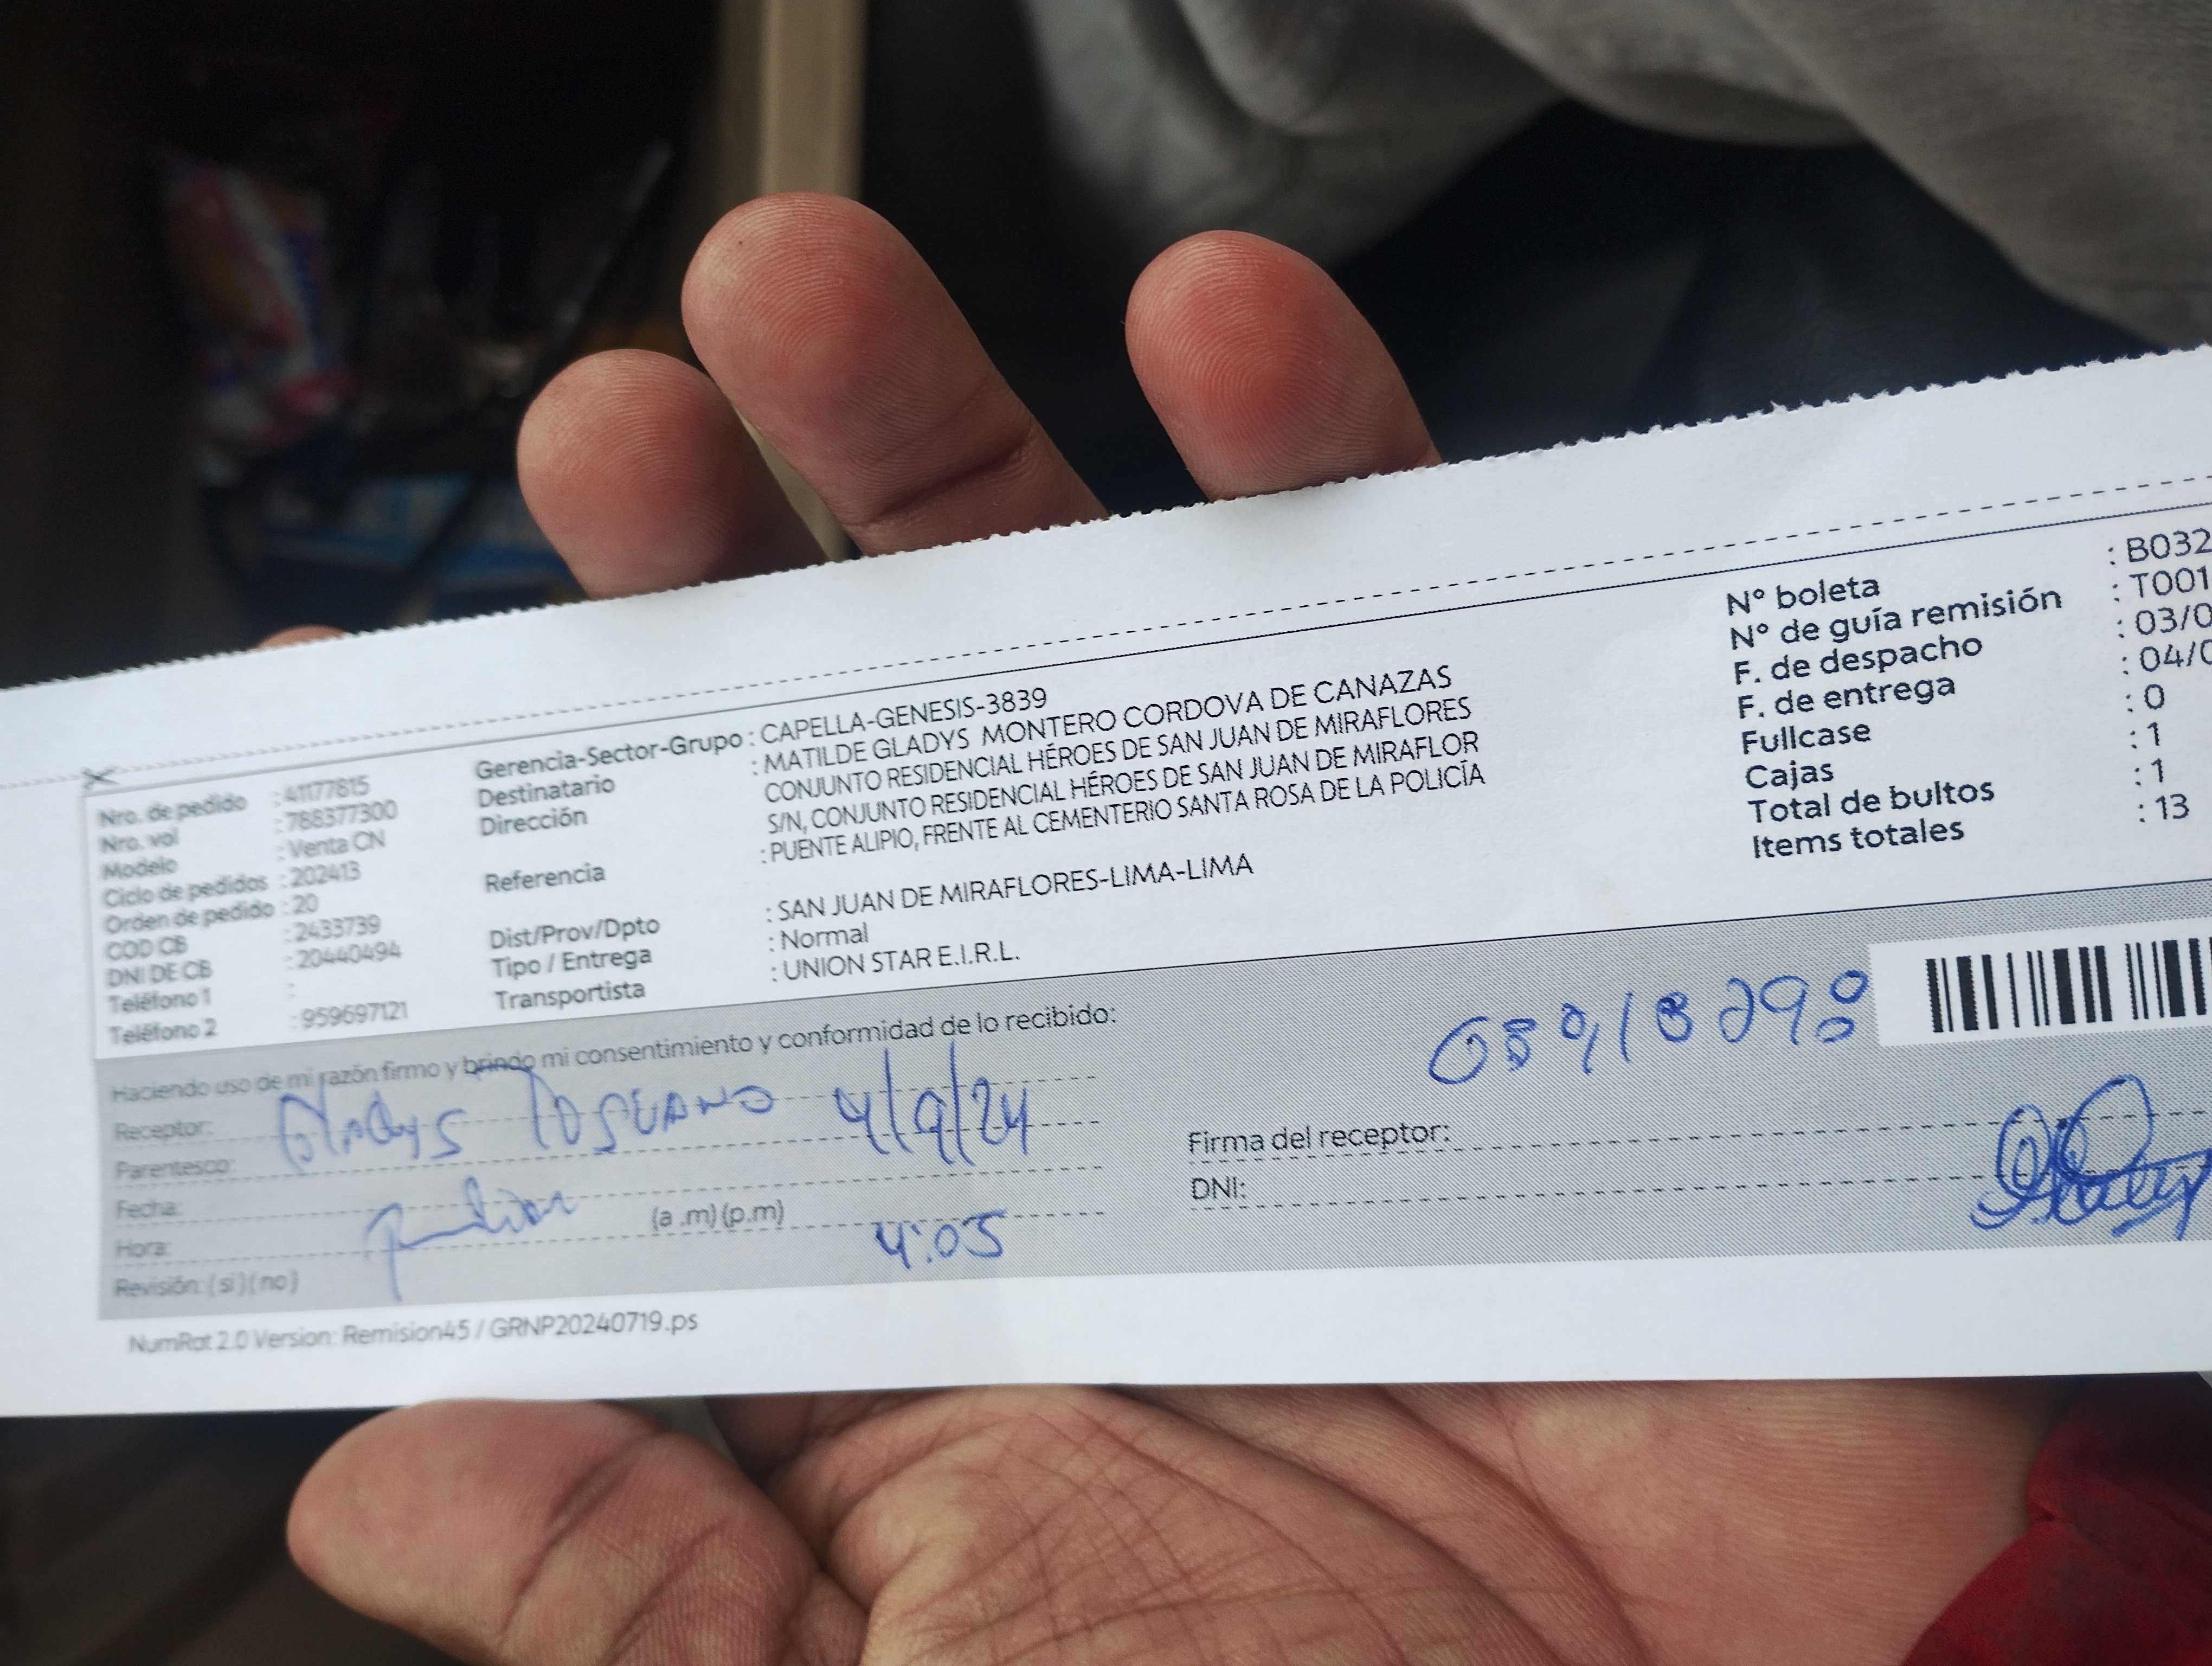 Nro. de pedido : 41177815
Nro. vol : 788377300
Modelo : Venta CN
Ciclo de pedidos : 202413
Orden de pedido : 20
COD CB : 2433739
DNI DE CB : 20440494
Teléfono 1 :
Teléfono 2 : 959697121
Gerencia-Sector-Grupo : CAPELLA-GENESIS-3839
Destinatario : MATILDE GLADYS MONTERO CORDOVA DE CANAZAS
Dirección CONJUNTO RESIDENCIAL HÉROES DE SAN JUAN DE MIRAFLORES
S/N, CONJUNTO RESIDENCIAL HÉROES DE SAN JUAN DE MIRAFLOR
Referencia : PUENTE ALIPIO, FRENTE AL CEMENTERIO SANTA ROSA DE LA POLICÍA
Dist/Prov/Dpto : SAN JUAN DE MIRAFLORES-LIMA-LIMA
Tipo / Entrega : Normal
Transportista : UNION STAR E.I.R.L.
N° boleta : B032
N° de guía remisión : T001
F. de despacho : 03/0
F. de entrega : 04/0
Fullcase : 0
Cajas : 1
Total de bultos : 1
Items totales : 13
Haciendo uso de mi razón firmo y brindo mi consentimiento y conformidad de lo recibido:
Receptor: Gladys
Parentesco: 4/9/24
Fecha:
Hora: (a .m) (p.m) 4:05
Revisión: ( si ) ( no )
Firma del receptor:
DNI:
NumRot 2.0 Version: Remision45 / GRNP20240719.ps